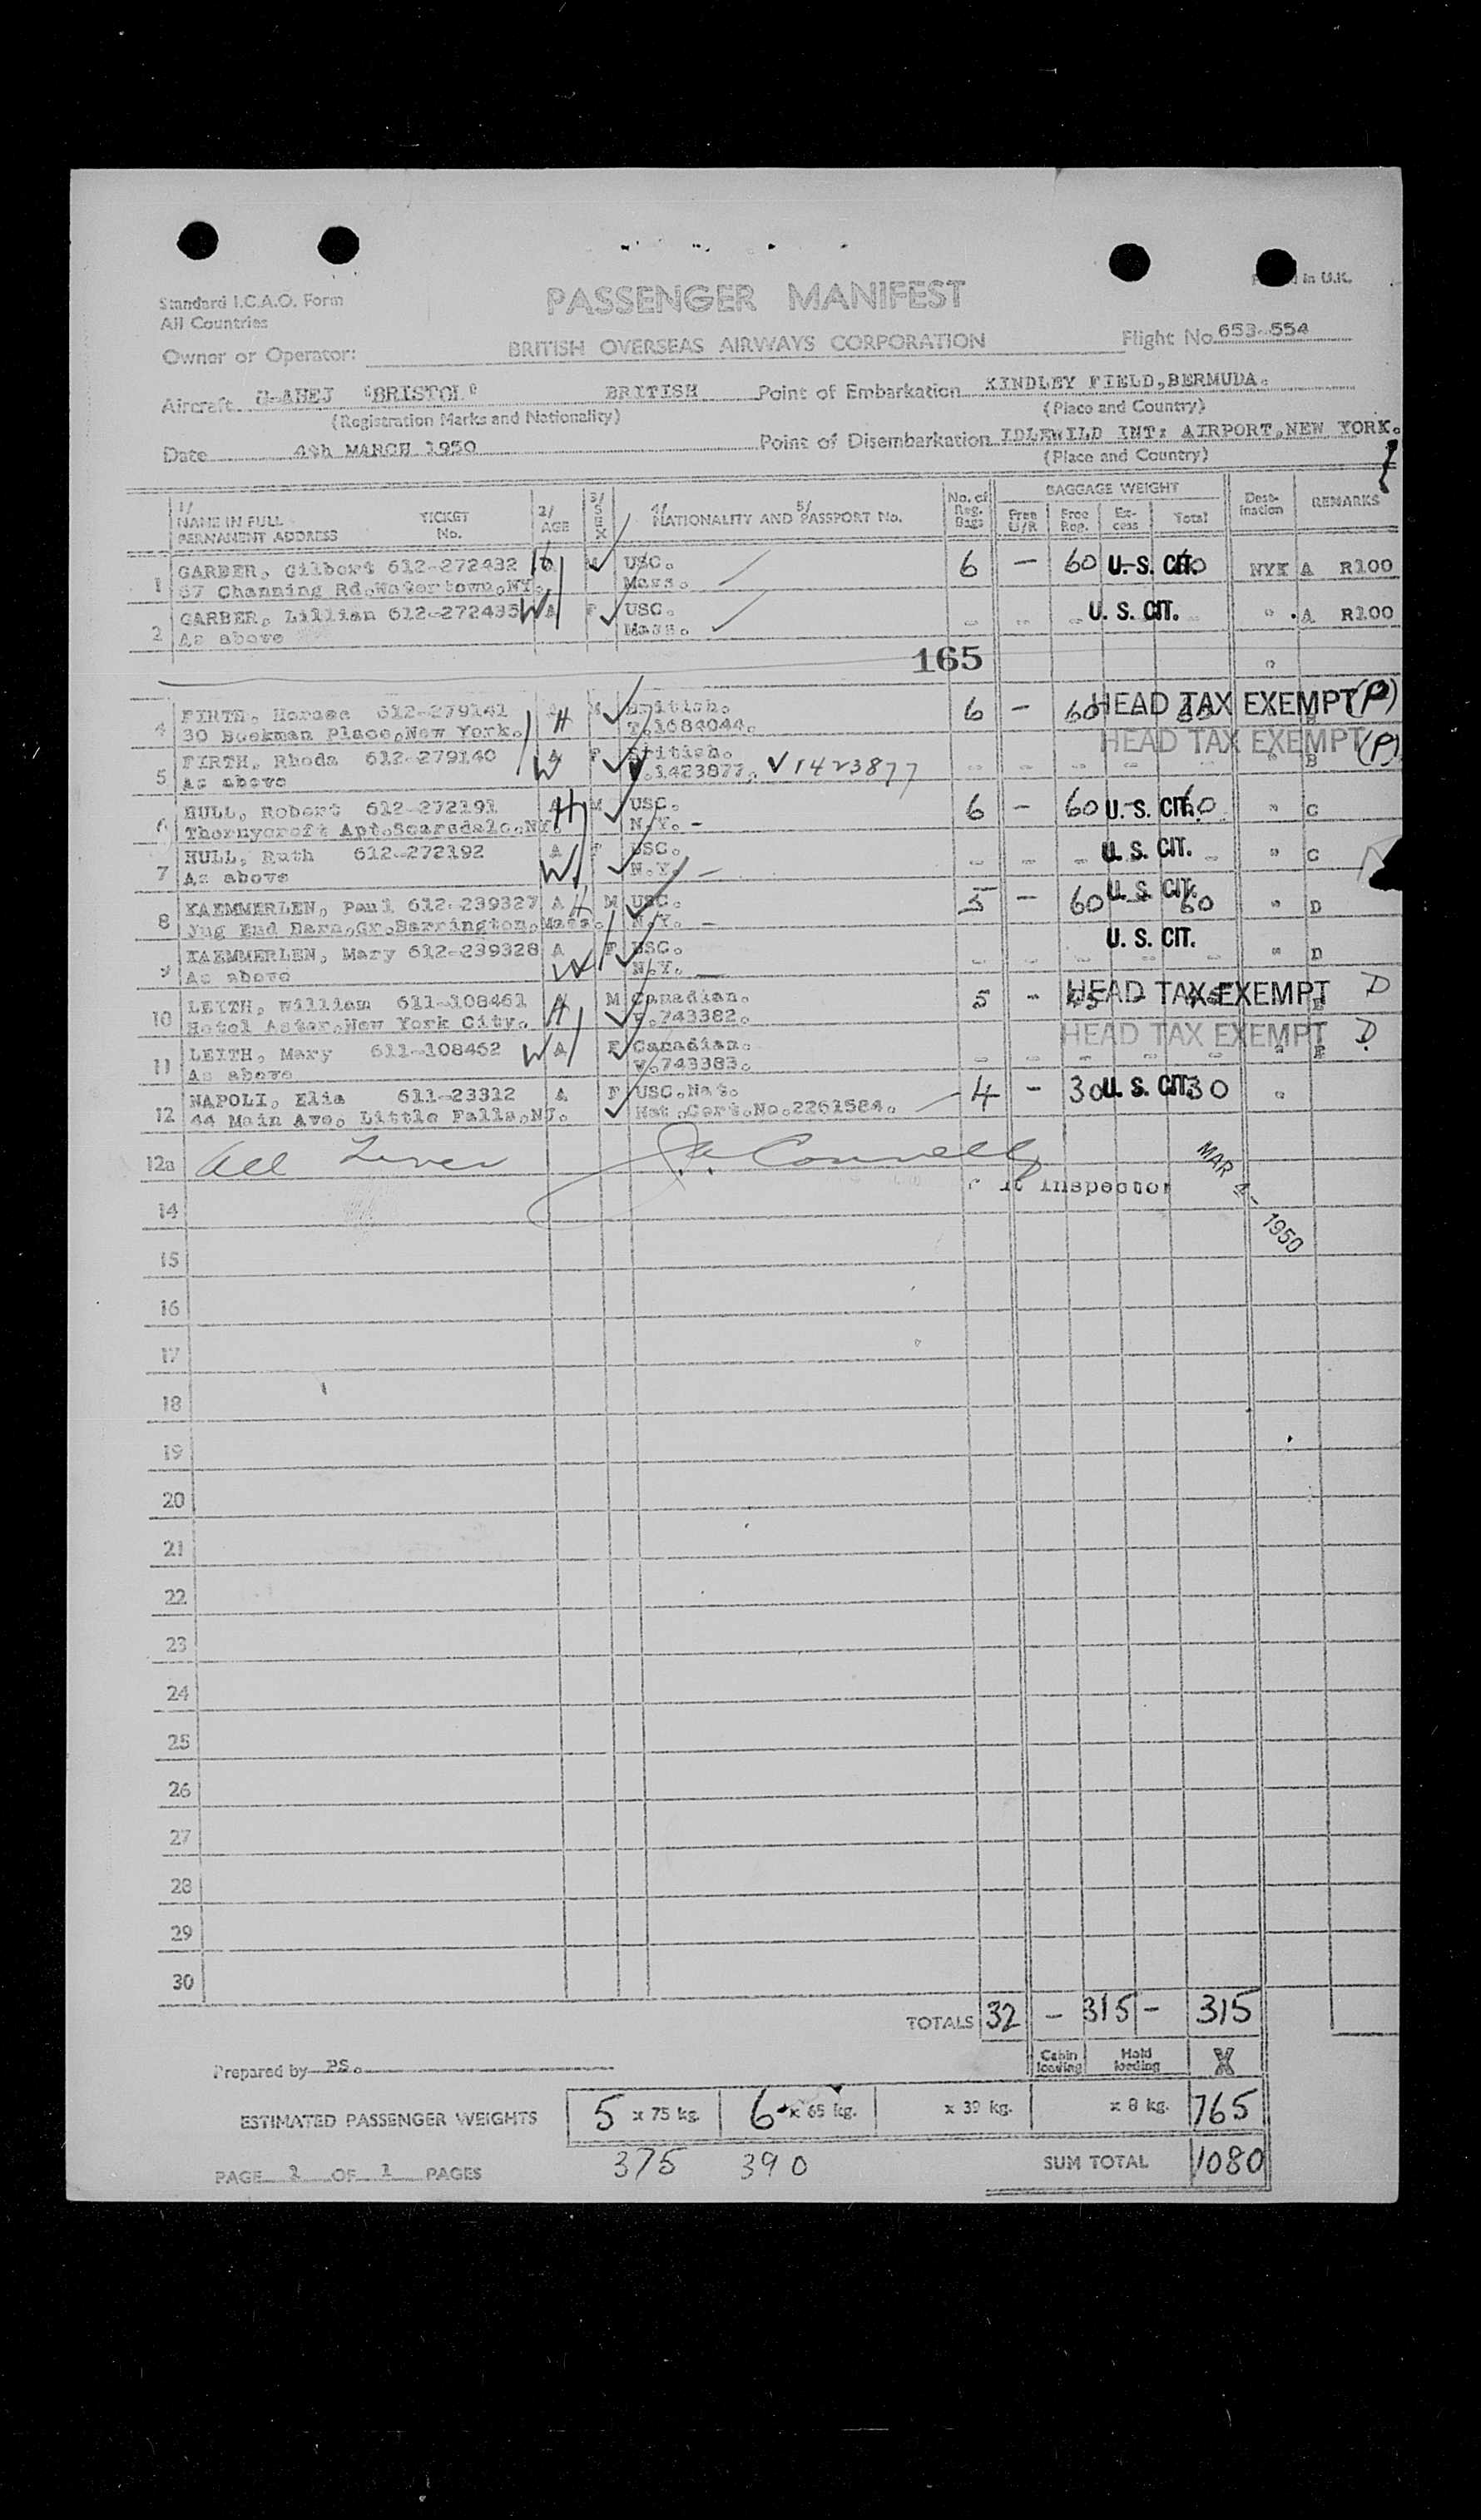 Standard I.C.A.O. Form
All Countries
PASSENGER MANIFEST
in U.K.
Owner or Operator: BRITISH OVERSEAS AIRWAYS CORPORATION Flight No. 653-554
Aircraft G-AHEJ "BRISTOL" BRITISH Point of Embarkation KINDLEY FIELD, BERMUDA.
(Registration Marks and Nationality) (Place and Country)
Date 4th MARCH 1950 Point of Disembarkation IDLEWILD INT: AIRPORT, NEW YORK.
(Place and Country)
1/ NAME IN FULL PERMANENT ADDRESS TICKET No. 2/ AGE 3/ SEX 4/ 5/ NATIONALITY AND PASSPORT No. No. of Reg. Bags BAGGAGE WEIGHT Free U/R Free Reg. Ex-cess Total Dest-ination REMARKS
1 GARBER, Gilbert 612-272432 H A M USC. 6 - 60 U. S. CIT. 60 NYK A R100
57 Channing Rd, Watertown, NY. Mass.
2 GARBER, Lillian 612-272435 W A F USC. - - - U. S. CIT. - " A R100
As above Mass.
165 "
4 FIRTH, Horace 612-279141 A H M British. 6 - 60 HEAD TAX EXEMPT (P)
30 Beekman Place, New York. T.1684044.
5 FIRTH, Rhoda 612-279140 A W F British. HEAD TAX EXEMPT (P)
As above .1423877. 1423877 - - - - - " B
6 HULL, Robert 612-272191 A H M USC. 6 - 60 U. S. CIT. 60 " C
Thornycroft Apt. Scarsdale, NY. N.Y. -
7 HULL, Ruth 612-272192 A W F USC. - - - U. S. CIT. - " C
As above N.Y. -
8 KAEMMERLEN, Paul 612-239327 A H M USC. 5 - 60 U. S. CIT. 60 " D
Jug End Barn, Gr. Barrington, Mass. N.Y. -
9 KAEMMERLEN, Mary 612-239328 A W F USC. - - - U. S. CIT. - " D
As above N.Y. -
10 LEITH, William 611-108461 A H M Canadian. 5 - 45 HEAD TAX EXEMPT D
Hotel Astor, New York City. V.743382.
11 LEITH, Mary 611-108462 W A F Canadian. HEAD TAX EXEMPT D
As above V.743383. - - - - - " E
12 NAPOLI, Elia 611-23312 A F USC.Nat. 4 - 30 U. S. CIT. 30 "
44 Main Ave. Little Falls, NJ. Nat.Cert.No.2261584.
12a All
Inspector
MAR 4 - 1950
14
15
16
17
18
19
20
21
22
23
24
25
26
27
28
29
30
TOTALS 32 - 315 - 315
Prepared by PS. Cabin loading Hold loading X
ESTIMATED PASSENGER WEIGHTS 5 x 75 kg. 6 x 65 kg. x 39 kg. x 8 kg. 765
375 390
PAGE 1 OF 1 PAGES SUM TOTAL 1080